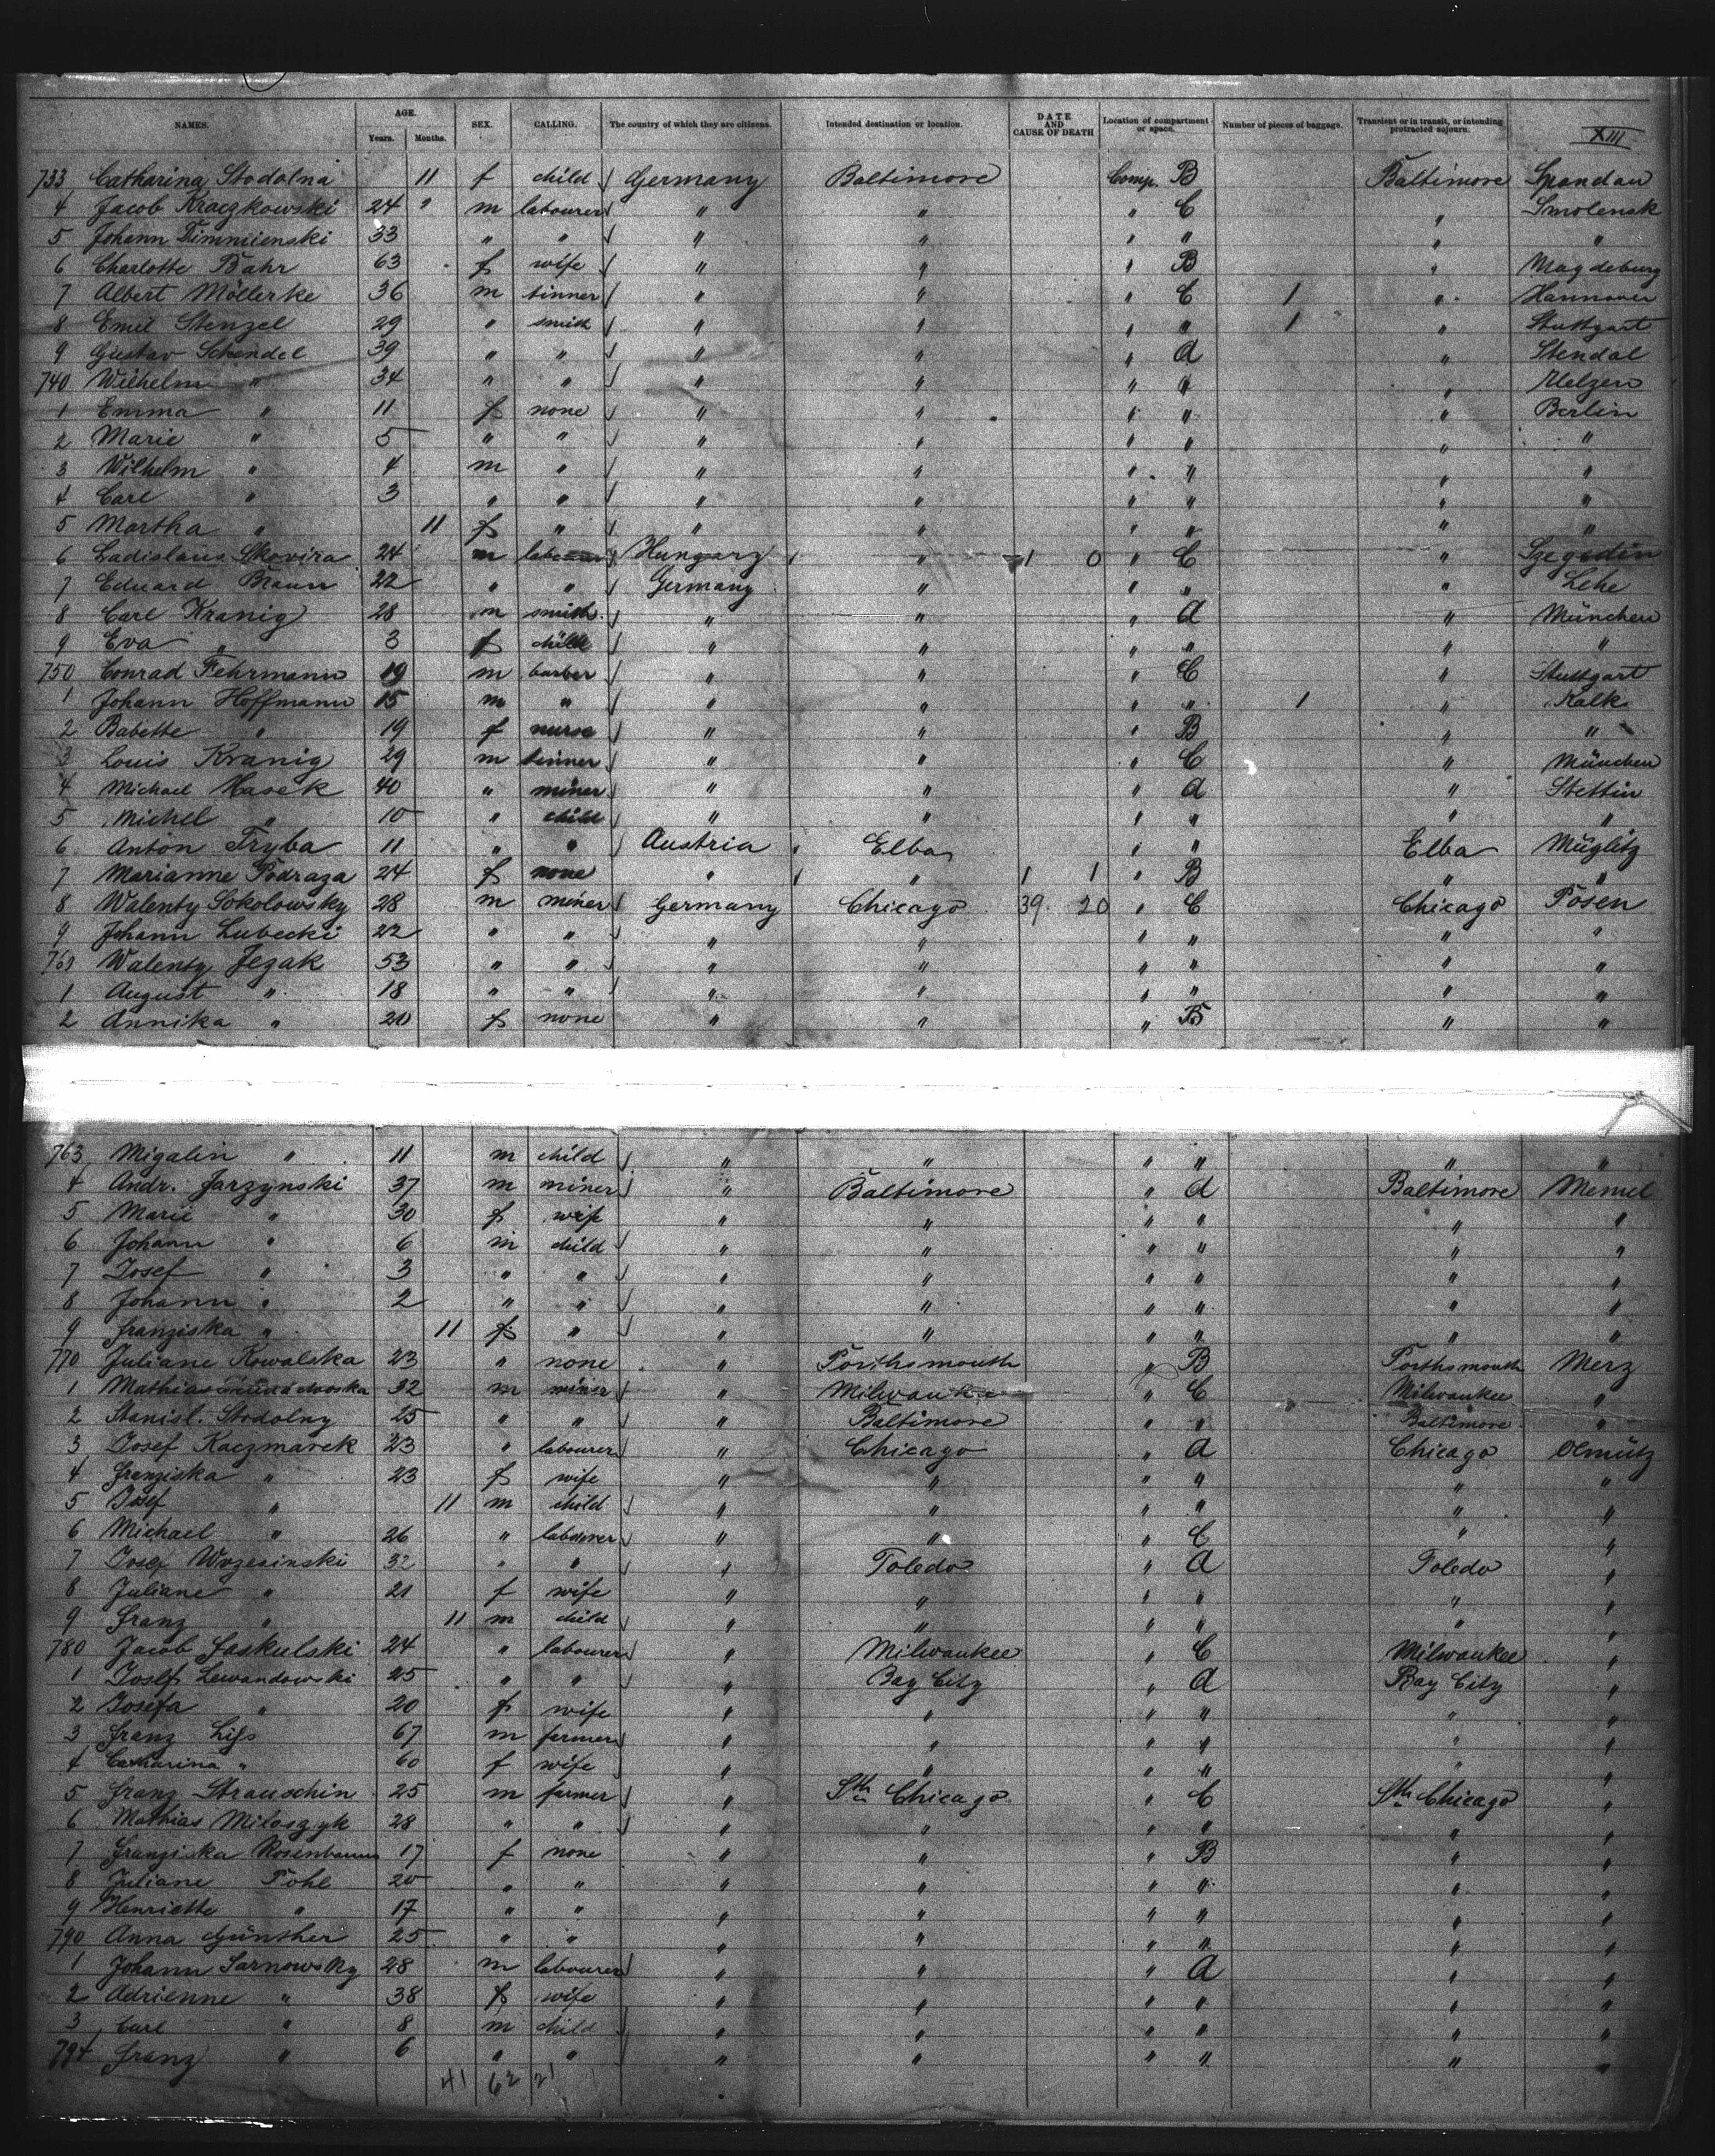 NAMES. AGE. Years. Months. SEX. CALLING. The country of which they are citizens. Intended destination or location. DATE AND CAUSE OF DEATH Location of compartment or space. Number of pieces of baggage. Transient or in transit, or intending protracted sojourn. XIII
733 Catharina Stodolna 11 f child Germany Baltimore Comp. B Baltimore Spandau
4 Jacob Kraczkowski 24 " m labourer " " " C " Smolensk
5 Johann 33 " " " " " " " "
6 Charlotte Bahr 63 f wife " " " B " Magdeburg
7 Albert Möllerke 36 m tinner " " " C 1 " Hannover
8 Emil Stenzel 29 " smith " " " " 1 " Stuttgart
9 Gustav Schendel 39 " " " " " A " Stendal
740 Wilhelm " 34 " " " " " " " Uelzen
1 Emma " 11 f none " " " " " Berlin
2 Marie " 5 " " " " " " " "
3 Wilhelm " 4 m " " " " " " "
4 Carl " 3 " " " " " " " "
5 Martha " 11 f " " " " " " "
6 Ladislaus Skovira 24 m Hungary " 1 0 " C " Szegedin
7 Eduard Braun 22 " " Germany " " " " Lehe
8 Carl Kranig 28 m smith " " " A " München
9 Eva " 3 f child " " " " " "
750 Conrad Fehrmann 19 m barber " " " C " Stuttgart
1 Johann Hoffmann 15 m " " " " " 1 " Kalk
2 Babette " 19 f nurse " " " B " "
3 Louis Kranig 29 m tinner " " " C " München
4 Michael Hasek 40 " miner " " " A " Stettin
5 Michel " 10 " child " " " " " "
6 Anton Tryba 11 " " Austria Elba " " Elba Müglitz
7 Marianne Podraza 24 f none " " 1 1 " B " "
8 Walenty Sokolowsky 28 m miner Germany Chicago 39 20 " C Chicago Posen
9 Johann Lubecki 22 " " " " " " " "
760 Walenty Jezak 53 " " " " " " " "
1 August " 18 " " " " " " " "
2 Annika " 20 f none " " " B " "
763 Migalin " 11 m child " " " " " "
4 Andr. Jarzynski 37 m miner " Baltimore " A Baltimore Memel
5 Marie " 30 f wife " " " " " "
6 Johann " 6 m child " " " " " "
7 Josef " 3 " " " " " " " "
8 Johann " 2 " " " " " " " "
9 Franziska " 11 f " " " " " " "
770 Juliane Kowalska 23 " none " Porthsmouth " B Porthsmouth Merz
1 Mathias 32 m miner " Milwaukee " C Milwaukee "
2 Stanisl. Stodolny 25 " " " Baltimore " " Baltimore "
3 Josef Kaczmarek 23 " labourer " Chicago " A Chicago Olmütz
4 Franziska " 23 f wife " " " " " "
5 Josef " 11 m child " " " " " "
6 Michael " 26 " labourer " " " C " "
7 Josef Wrzesinski 32 " " " Toledo " A Toledo "
8 Juliane " 21 f wife " " " " " "
9 Franz " 11 m child " " " " " "
780 Jacob Jaskulski 24 " labourer " Milwaukee " C Milwaukee "
1 Josef Lewandowski 25 " " " Bay City " A Bay City "
2 Josefa " 20 f wife " " " " " "
3 Franz Liss 67 m farmer " " " " " "
4 Catharina " 60 f wife " " " " " "
5 Franz Strauschin 25 m farmer " Sth Chicago " C Sth Chicago "
6 Mathias Miloszyk 28 " " " " " " " "
7 Franziska Rosenbaum 17 f none " " " B " "
8 Juliane Pohl 20 " " " " " " " "
9 Henriette " 17 " " " " " " " "
790 Anna Günther 25 " " " " " " " "
1 Johann Sarnowsky 28 m labourer " " " A " "
2 Adrienne " 38 f wife " " " " " "
3 Carl " 8 m child " " " " " "
794 Franz " 6 " " " " " " " "
41 62 21